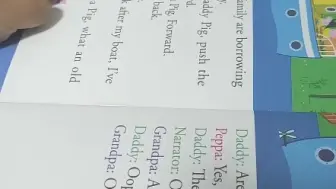 are borrowing
Pig, push the
Pig. Forward.
back.
after my boat, I've
Pig, what an old
Daddy: Are
Peppa: Yes,
Daddy:
Narrator:
Grandpa:
Daddy:
Grandpa: